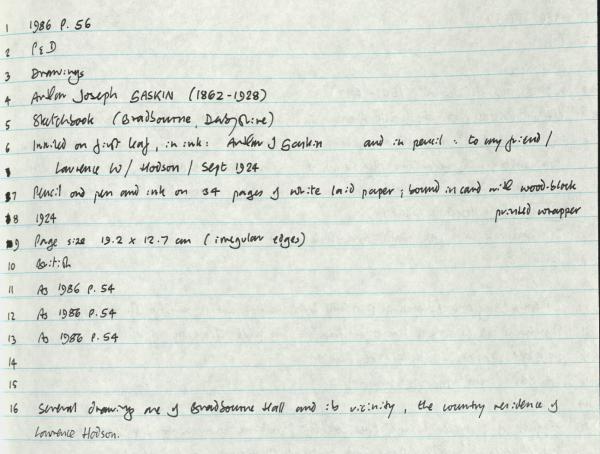 1 1986 P. 56
2 P & D
3 Drawings
4 Arthur Joseph GASKIN (1862-1928)
5 Sketchbook (Bradbourne, Derbyshire)
6 Inscribed on first leaf, in ink: Arthur J Gaskin and in pencil: to my friend /
Lawrence W / Hodson / Sept 1924
7 Pencil and pen and ink on 34 pages of white laid paper; bound in card with wood-block
printed wrapper
8 1924
9 Page size 19.2 x 12.7 cm (irregular edges)
10 British
11 As 1986 P.54
12 As 1986 P.54
13 As 1986 P.54
14
15
16 Several drawings are of Bradbourne Hall and its vicinity, the country residence of
Lawrence Hodson.